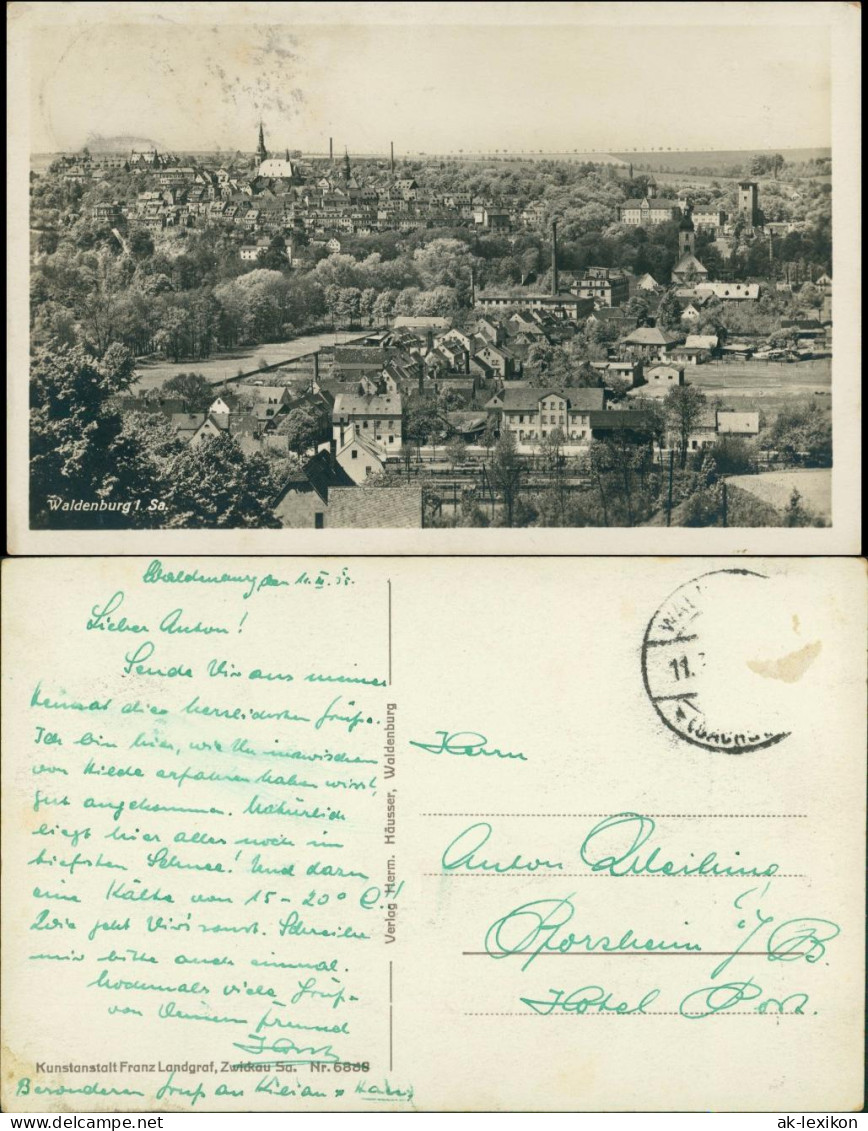 Waldenburg i. Sa.
Waldenburg den 11. III. 35.
Lieber Anton!
Sende Dir aus meiner
Heimat die herzlichsten Grüße.
Ich bin hier, wie Du inzwischen
von Hilde erfahren haben wirst,
gut angekommen. Natürlich
liegt hier alles noch im
tiefsten Schnee! Und dazu
eine Kälte von 15-20° C.!!
Wie geht Dir's sonst. Schreibe
mir bitte auch einmal.
Nochmals viele Grüße
von Deinem Freund
Horst
Kunstanstalt Franz Landgraf, Zwickau Sa. Nr. 6868
Besonderen Gruß an Kilian
Verlag Herm. Häusser, Waldenburg
WAL
11.
(SACHS
Herrn
Anton
Pforzheim i/B.
Hotel Post.
ak-lexikon